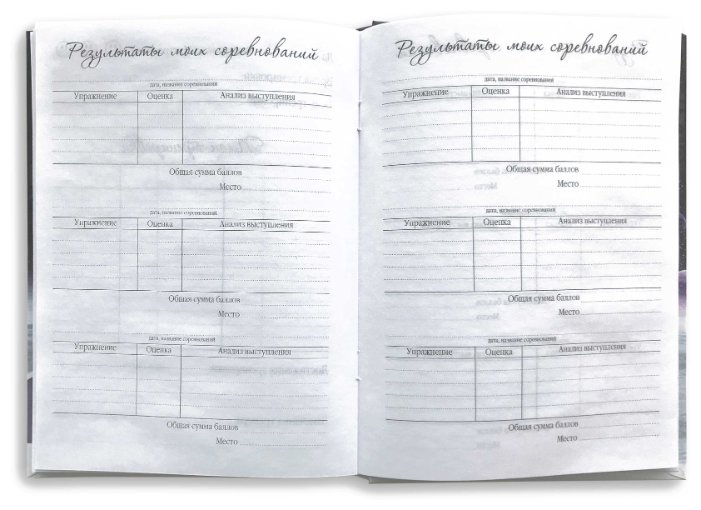 Результаты моих соревнований
дата, название соревнования
Упражнение Оценка Анализ выступления
Общая сумма баллов
Место
дата, название соревнования
Упражнение Оценка Анализ выступления
Общая сумма баллов
Место
дата, название соревнования
Упражнение Оценка Анализ выступления
Общая сумма баллов
Место
Результаты моих соревнований
дата, название соревнования
Упражнение Оценка Анализ выступления
Общая сумма баллов
Место
дата, название соревнования
Упражнение Оценка Анализ выступления
Общая сумма баллов
Место
дата, название соревнования
Упражнение Оценка Анализ выступления
Общая сумма баллов
Место